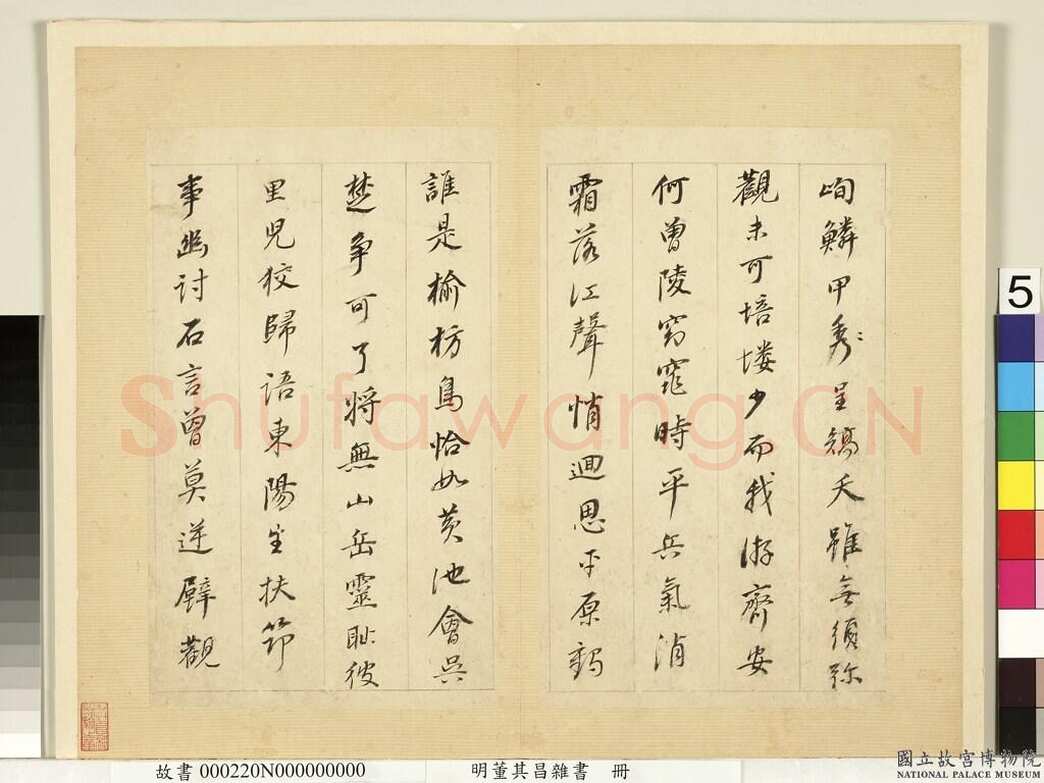 峋鱗甲秀〻呈編夭雖無須彌
觀未可培塿少而我游齊安
何曾陵窈窕時平兵氣消
霜落江聲悄迴思平原鷂
誰是榆枋鳥恰如黃池會吳
楚爭可了將無山岳靈恥彼
里兒狡歸語東陽生扶筇
事幽討石言曾莫逆壁觀
Shufawang.CN
5
故書 000220N000000000 明董其昌雜書 冊
國立故宮博物院
NATIONAL PALACE MUSEUM